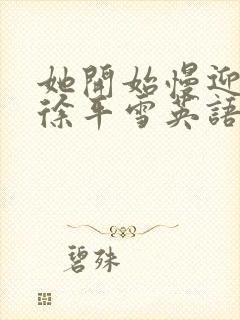 她開始慢迎
徐平雪英語
碧殊